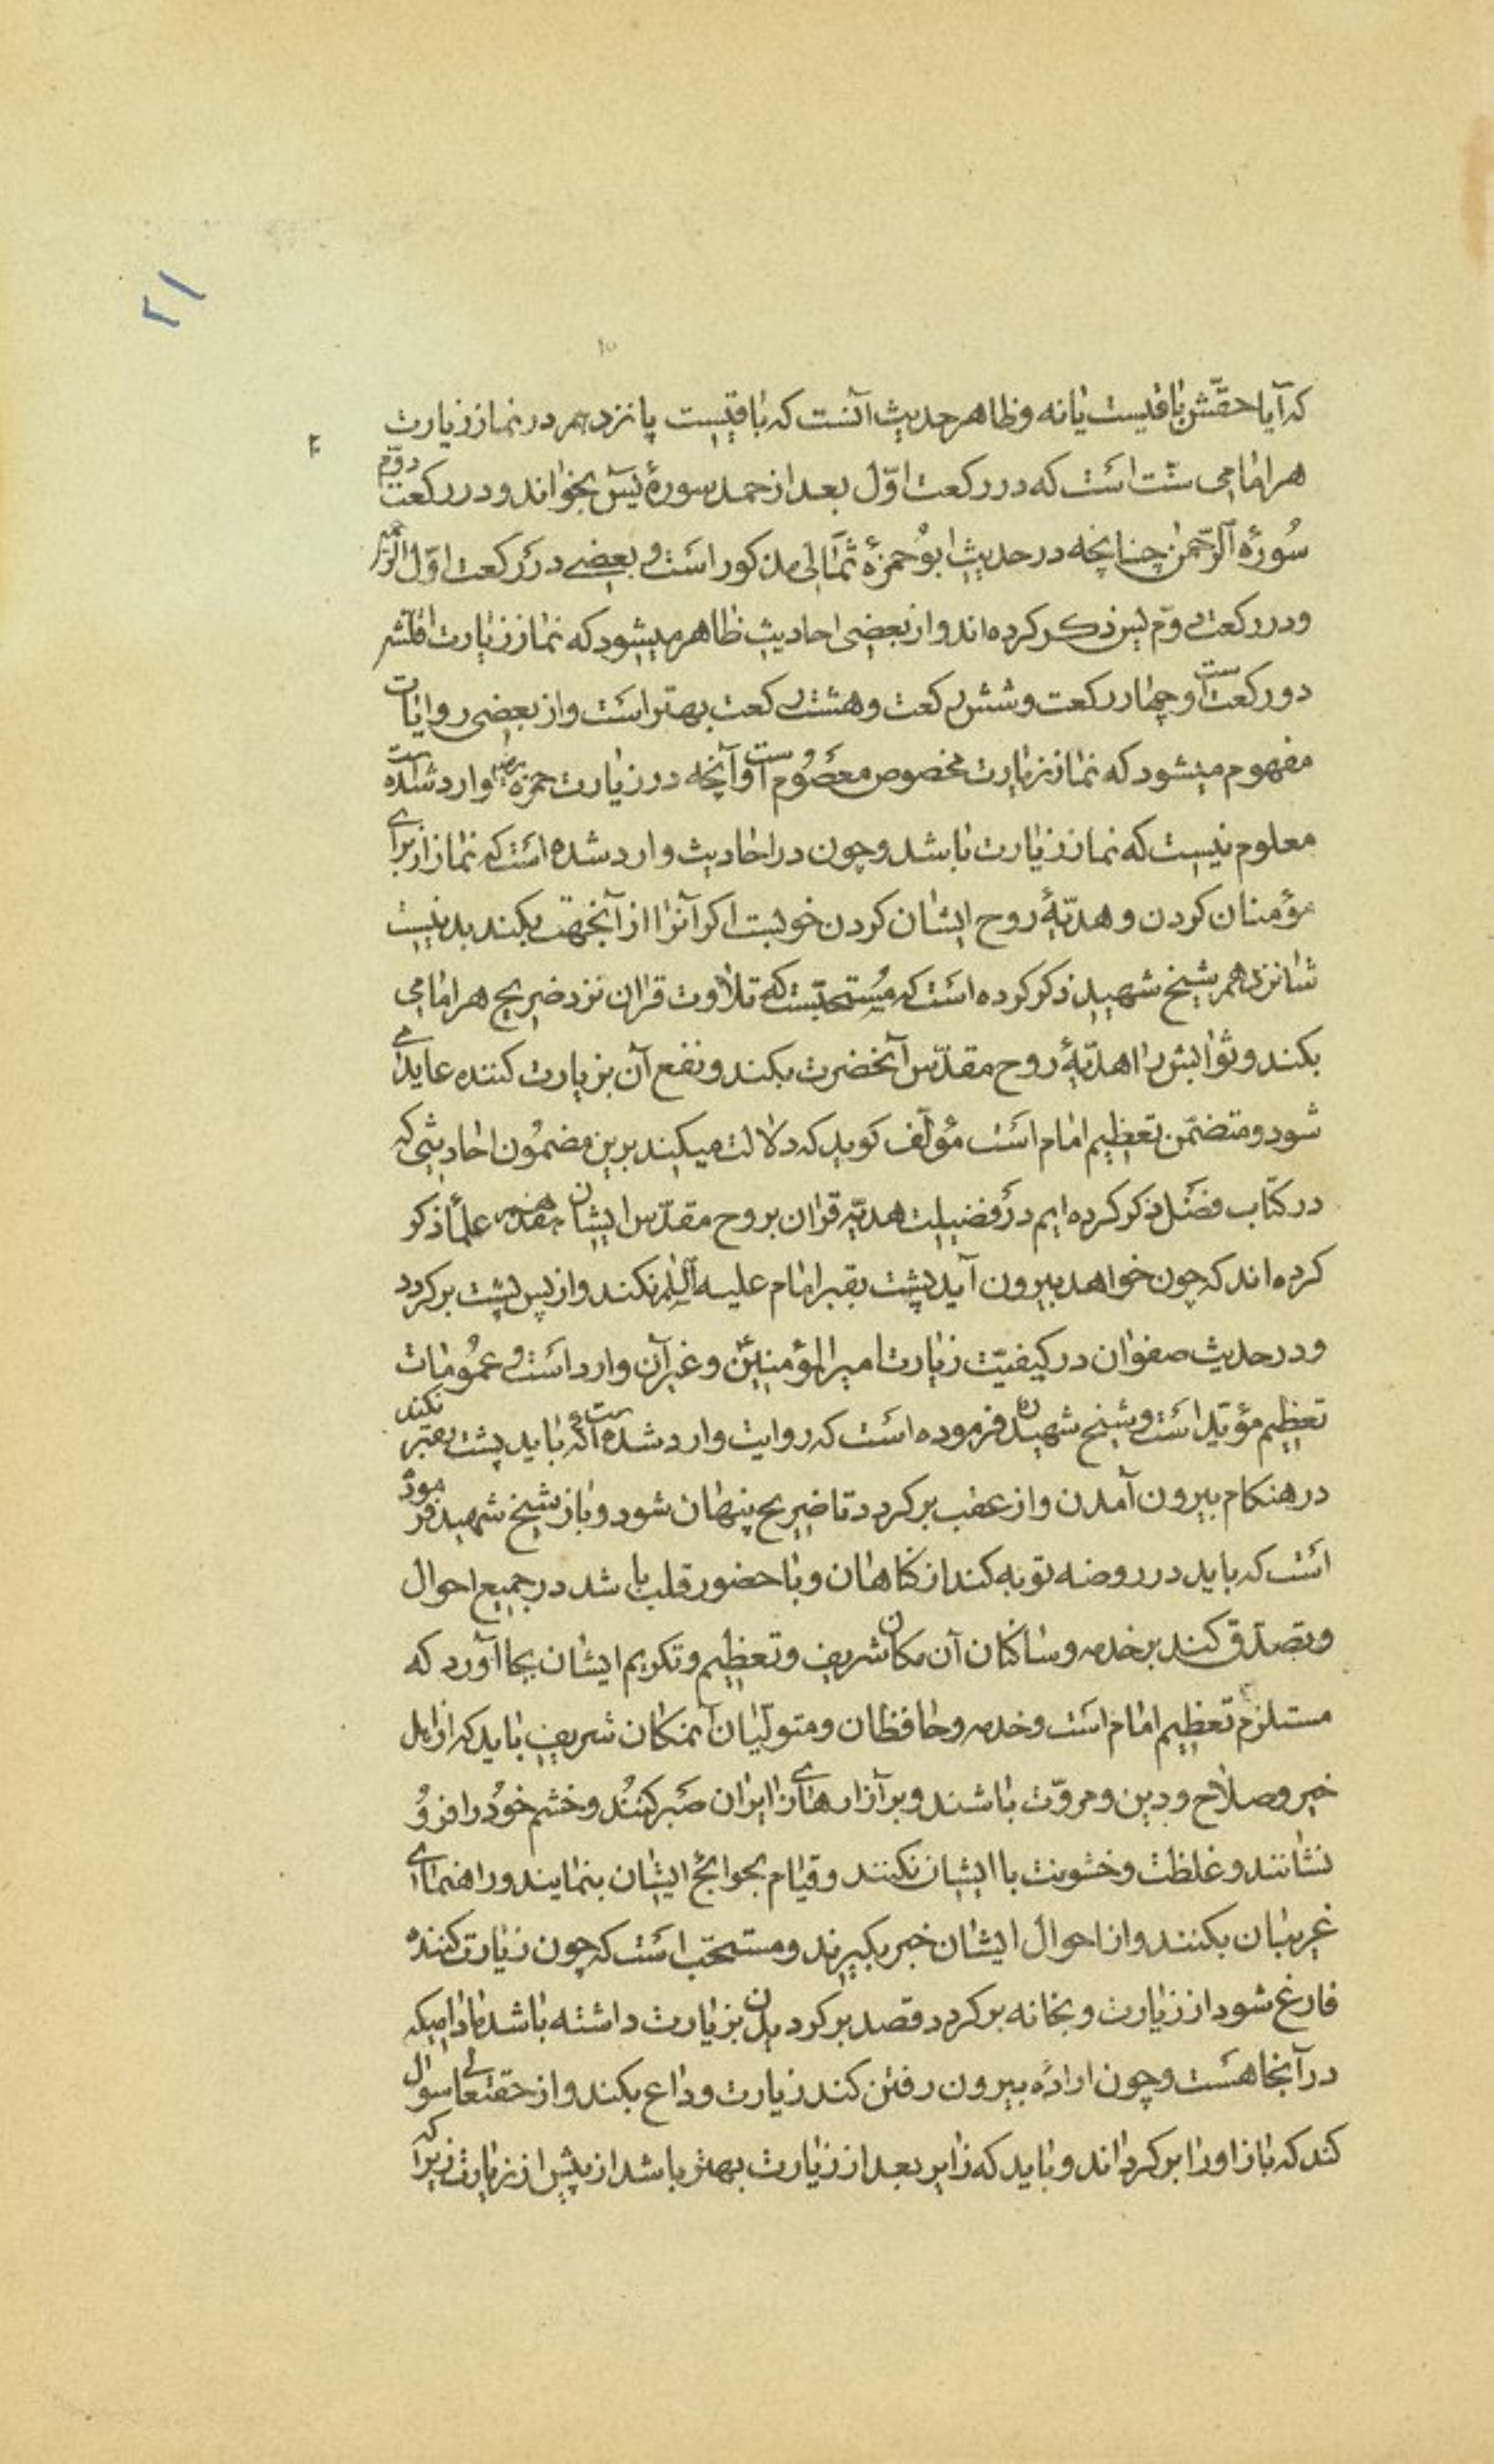 ۲۱
که آیا حقّش باقیست یانه و ظاهر حدیث آنست که باقیست پانزدهم در نماز زیارت
هر امامی سنّت است که در رکعت اوّل بعد از حمد سورهٔ یٓس بخواند و در رکعت دوّم
سُورهٔ الرّحمن چنانچه در حدیث ابوُحمزهٔ ثمٰالی مذکور است و بعضے در رکعت اوّل الرّحمن
و در رکعت دوّم یس ذکر کرده‌اند و از بعضی احادیث ظاهر میشود که نماز زیارت اقلّش
دو رکعت است و چهار رکعت و شش رکعت و هشت رکعت بهتر است و از بعضی روایات
مفهوم میشود که نماز زیارت مخصوص معصُوم است و آنچه در زیارت حمزه وارد شده است
معلوم نیست که نماز زیارت باشد و چون در احادیث وارد شده است که نماز از برای
مؤمنان کردن و هدیّهٔ روح ایشان کردن خوبست اکر آنرا از آنجهت بکند بد نیست
شانزدهم شیخ شهید ذکر کرده است که مُستحبّست که تلاوت قران نزد ضریح هر امامی
بکند و ثوابش را هدیّهٔ روح مقدّس آنحضرت بکند و نفع آن بزیارت کننده عاید می
شود و متضمّن تعظیم امام است مؤلّف کوید که دلالت میکند برین مضموُن احادیثی که
در کتاب فضل ذکر کرده ایم در فضیلت هدیّه قران بروح مقدّس ایشان هفدهم علمأ ذکر
کرده‌اند که چون خواهد بیرون آید پشت بقبر امام علیه السّلم نکند و از پس پشت برکردد
و در حدیث صفوان در کیفیّت زیارت امیر المؤمنین و غیر آن وارد است و عموُمات
تعظیم مؤیّد است و شیخ شهید ره فرموده است که روایت وارد شده است که باید پشت بقبر نکند
در هنکام بیرون آمدن و از عقب برکردد تا ضریح پنهان شود و باز شیخ شهید فرموده
است که باید در روضه توبه کند از کناهان و با حضور قلب باشد در جمیع احوال
و تصدّق کند بر خدمه و ساکنان آن مکان شریف و تعظیم و تکریم ایشان بجا آورد که
مستلزم تعظیم امام است و خدمه و حافظان و متولّیان آنمکان شریف باید که از اهل
خیر و صلاح و دین و مروّت باشند و بر آزارهای زایران صبر کنند و خشم خوُد را فرو
نشانند و غلظت و خشونت با ایشان نکنند و قیام بحوایج ایشان بنمایند و راهنمائی
غریبان بکنند و از احوال ایشان خبر بکیرند و مستحبّ است که چون زیارت کننده
فارغ شود از زیارت و بخانه برکردد قصد برکردیدن بزیارت داشته باشد مادامیکه
در آنجا هست و چون ارادهٔ بیرون رفتن کند زیارت وداع بکند و از حقتعالی سوال
کند که باز او را برکرداند و باید که زایر بعد از زیارت بهتر باشد از پیش از زیارت زیرا که